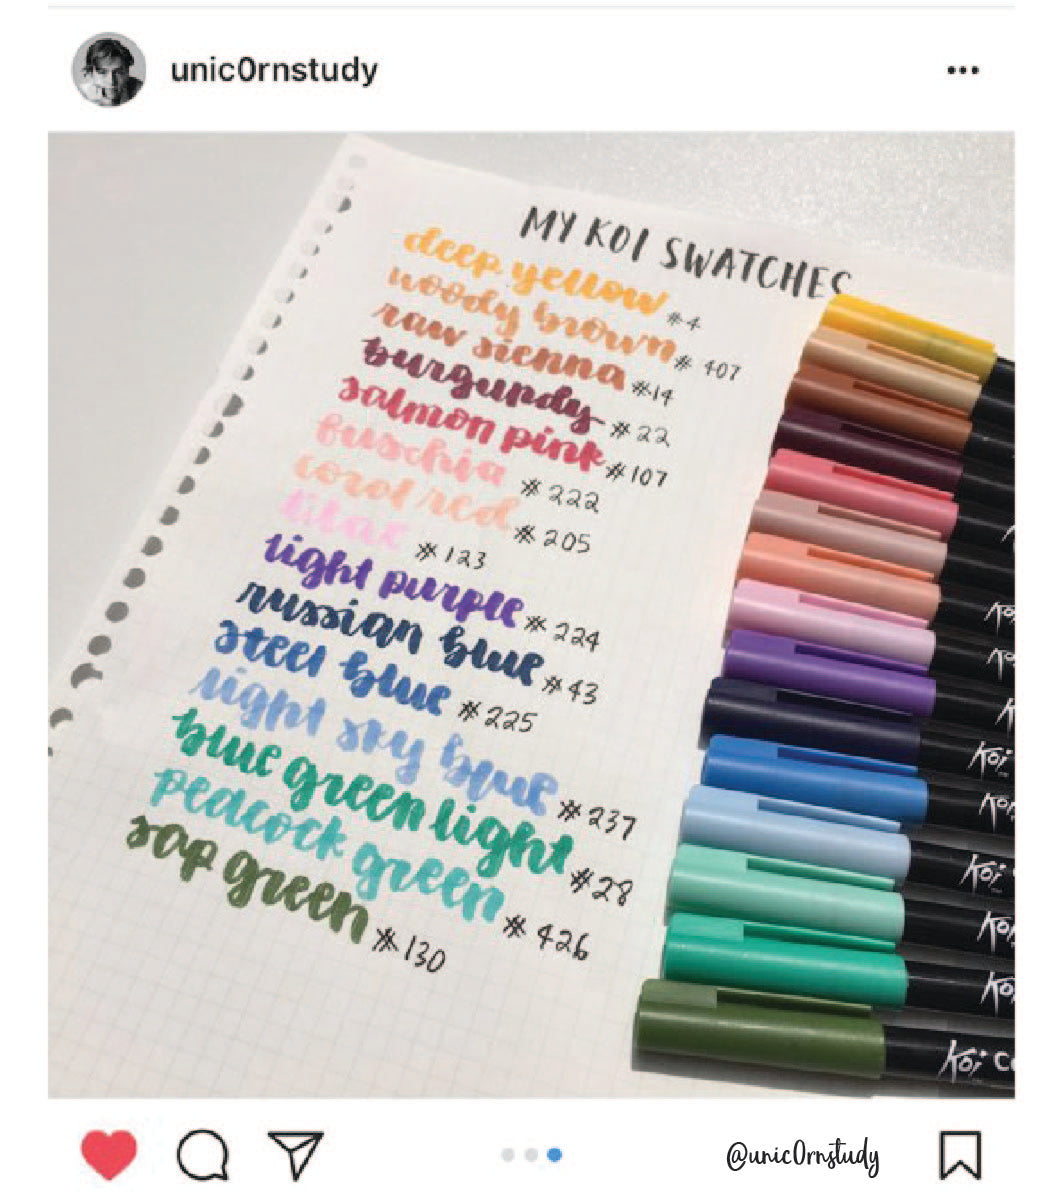 unic0rnstudy
MY KOI SWATCHES
deep yellow #4
woody brown #407
raw sienna #14
burgundy #22
salmon pink #107
fuschia #222
coral red #205
lilac #123
light purple #224
russian blue #43
steel blue #225
light sky blue #237
blue green light #28
peacock green #426
sap green #130
Koi
Koi
Koi
Koi
Koi
@unic0rnstudy